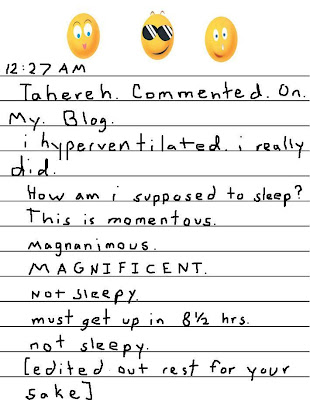 12:27 AM
Tahereh. Commented. On.
My. Blog.
i hyperventilated. i really
did.
How am i supposed to sleep?
This is momentous.
Magnanimous.
MAGNIFICENT.
Not sleepy.
must get up in 8½ hrs.
not sleepy.
[edited out rest for your
sake]